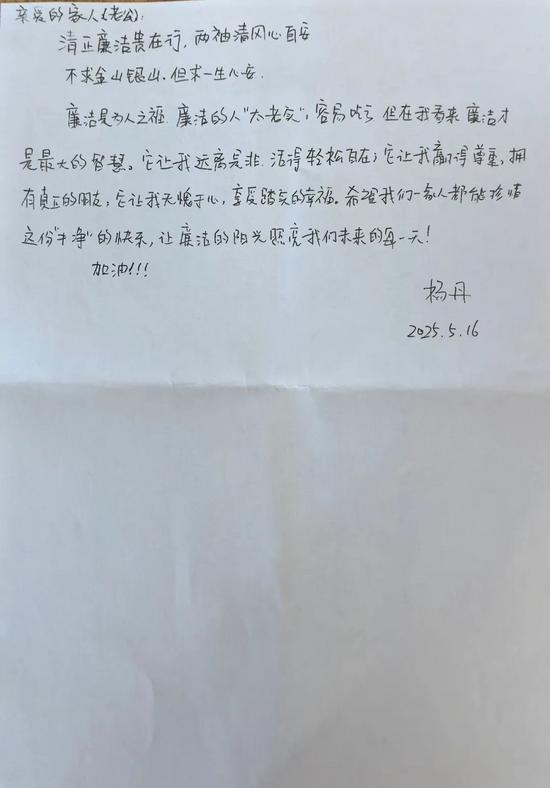 亲爱的家人(老公):
清正廉洁贵在行,两袖清风心自安
不求金山银山,但求一生心安.
廉洁是为人之福.廉洁的人“太老实”,容易吃亏.但在我看来,廉洁才
是最大的智慧。它让我远离是非.活得轻松自在;它让我赢得尊重,拥
有真正的朋友;它让我无愧于心,享受踏实的幸福。希望我们一家人都能珍惜
这份“干净”的快乐,让廉洁的阳光照亮我们未来的每一天!
加油!!!
杨丹
2025.5.16